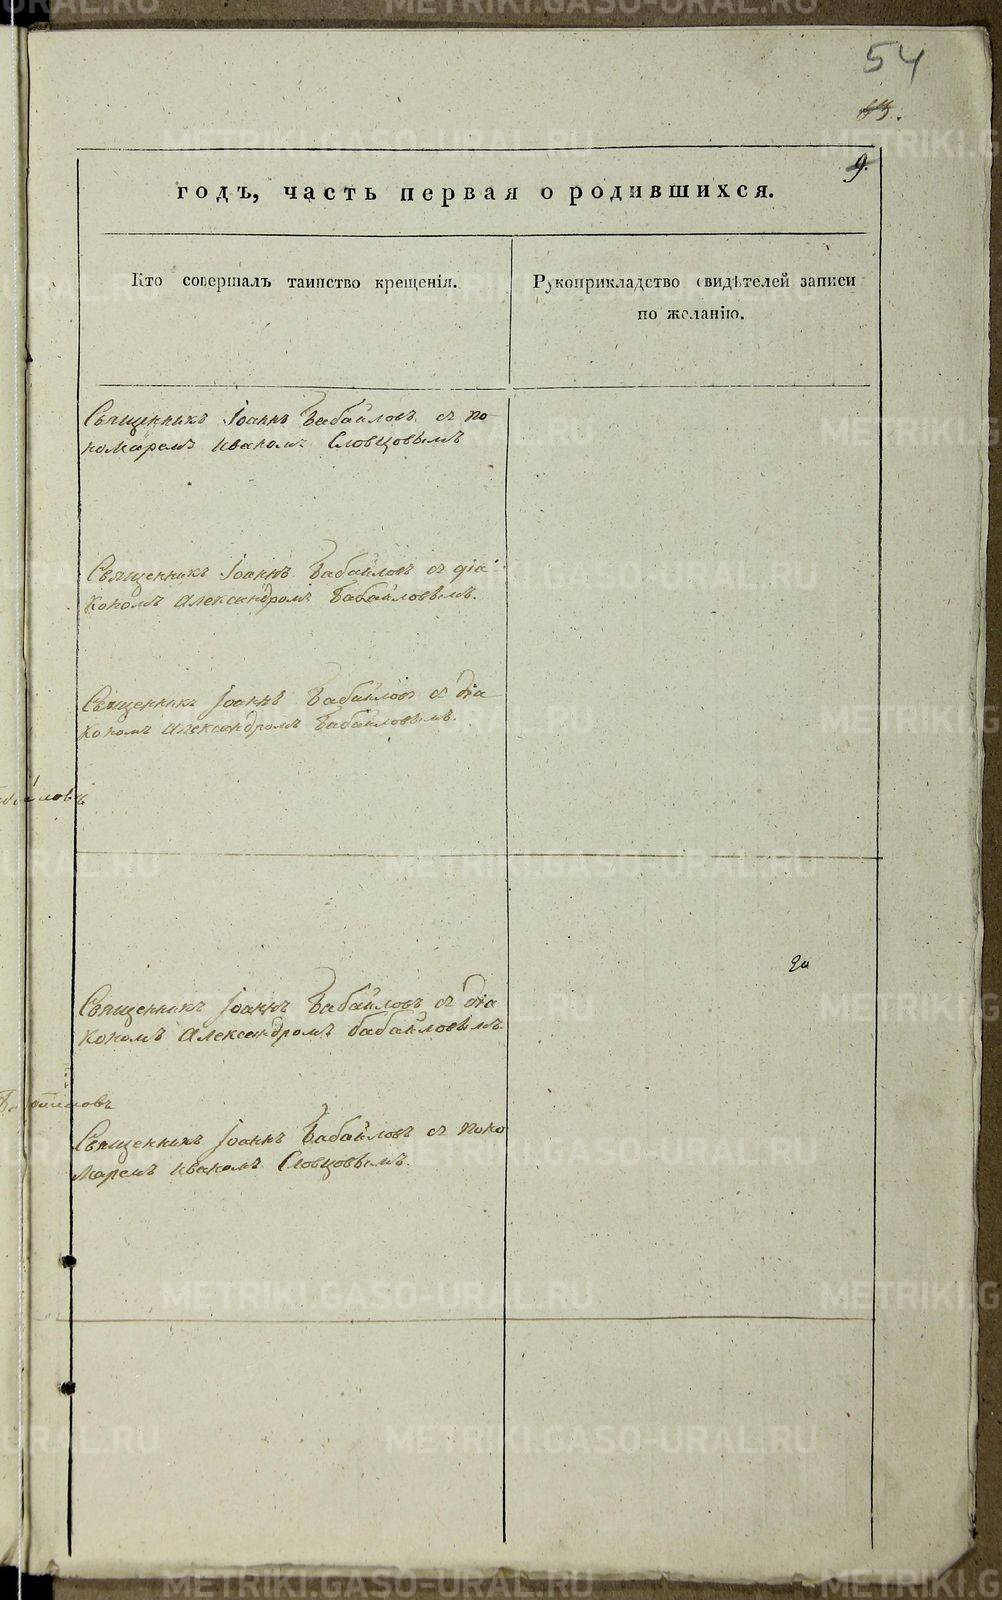 54
9.
годъ, часть первая о родившихся.
Кто совершалъ таинство крещенія.
Рукоприкладство свидѣтелей записи
по желанію.
Священникъ Іоаннъ Бабайловъ съ по
номаремъ Иваномъ Словцовымъ
Священникъ Іоаннъ Бабайловъ съ діа
кономъ Александромъ Бабайловымъ.
Священникъ Іоаннъ Бабайловъ съ діа
кономъ Александромъ Бабайловымъ.
Священникъ Іоаннъ Бабайловъ съ діа
кономъ Александромъ Бабайловымъ.
Священникъ Іоаннъ Бабайловъ съ поно
маремъ Иваномъ Словцовымъ.
METRIKI.GASO-URAL.RU